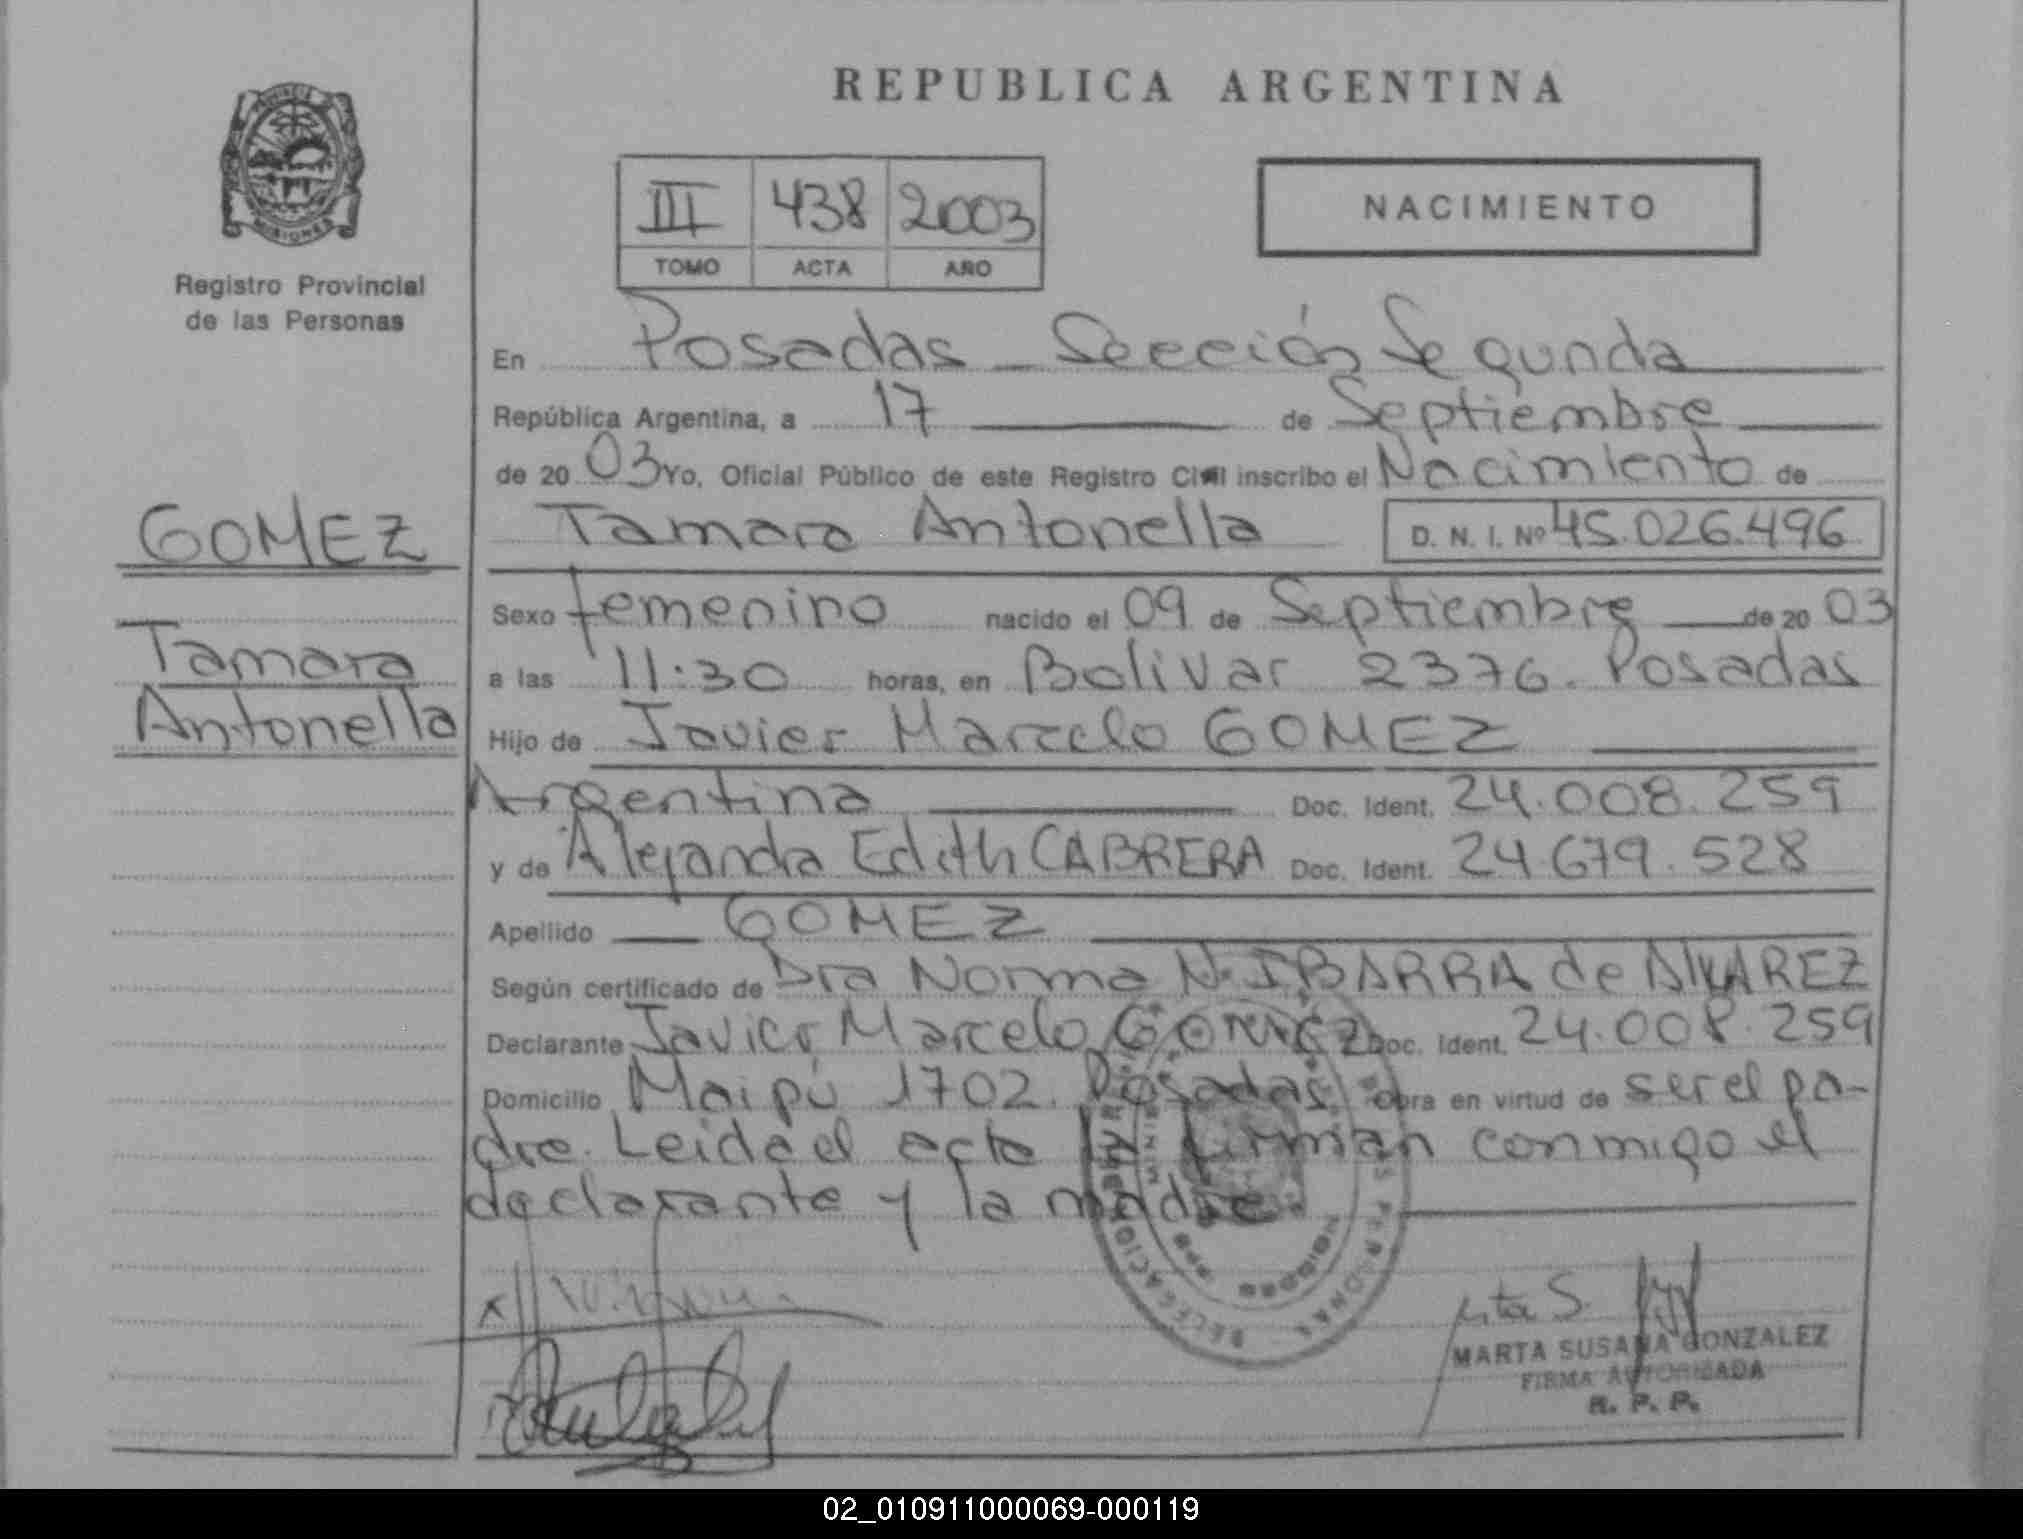 REPUBLICA ARGENTINA
PROVINCIA
MISIONES
Registro Provincial
de las Personas
III 438 2003
TOMO ACTA AÑO
NACIMIENTO
En Posadas - Sección Segunda
República Argentina, a 17 de Septiembre
de 20 03 Yo, Oficial Público de este Registro Civil inscribo el Nacimiento de
Tamara Antonella D. N. I. Nº 45.026.496
GOMEZ
Tamara
Antonella
Sexo femenino nacido el 09 de Septiembre de 20 03
a las 11:30 horas, en Bolivar 2376. Posadas
Hijo de Javier Marcelo GOMEZ
Argentina Doc. Ident. 24.008.259
y de Alejandra Edith CABRERA Doc. Ident. 24.679.528
Apellido GOMEZ
Según certificado de Dra Norma N. IBARRA de ALVAREZ
Declarante Javier Marcelo GOMEZ Doc. Ident. 24.008.259
Domicilio Maipú 1702. Posadas obra en virtud de ser el pa-
dre. Leida el acta la firman conmigo el
declarante y la madre
x
MARTA SUSANA GONZALEZ
FIRMA AUTORIZADA
R. P. P.
02_010911000069-000119